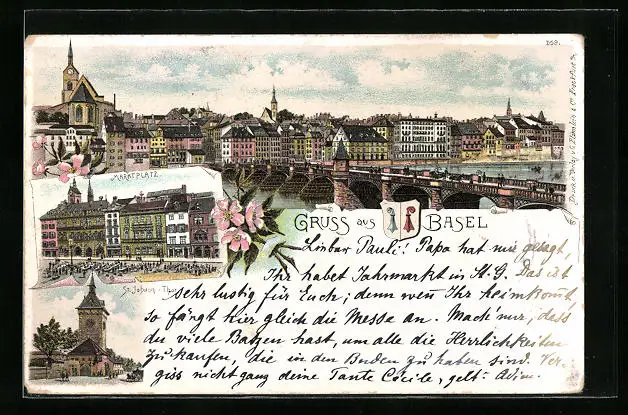 DS9.
MARKTPLATZ.
GRUSS AUS BASEL
St. Johann-Thor
Lieber Pauli! Papa hat mir gesagt,
Ihr habet Jahrmarkt in H. G. Das ist
sehr lustig für Euch; denn wenn Ihr heimkomt,
so fängt hier gleich die Messe an. Mach' nur, dass
du viele Batzen hast, um alle die Herrlichkeiten
zu kaufen, die in den Buden zu haben sind. Ver-
giss nicht ganz deine Tante Cécile, gelt. Adieu.
Druck u. Verlag v.